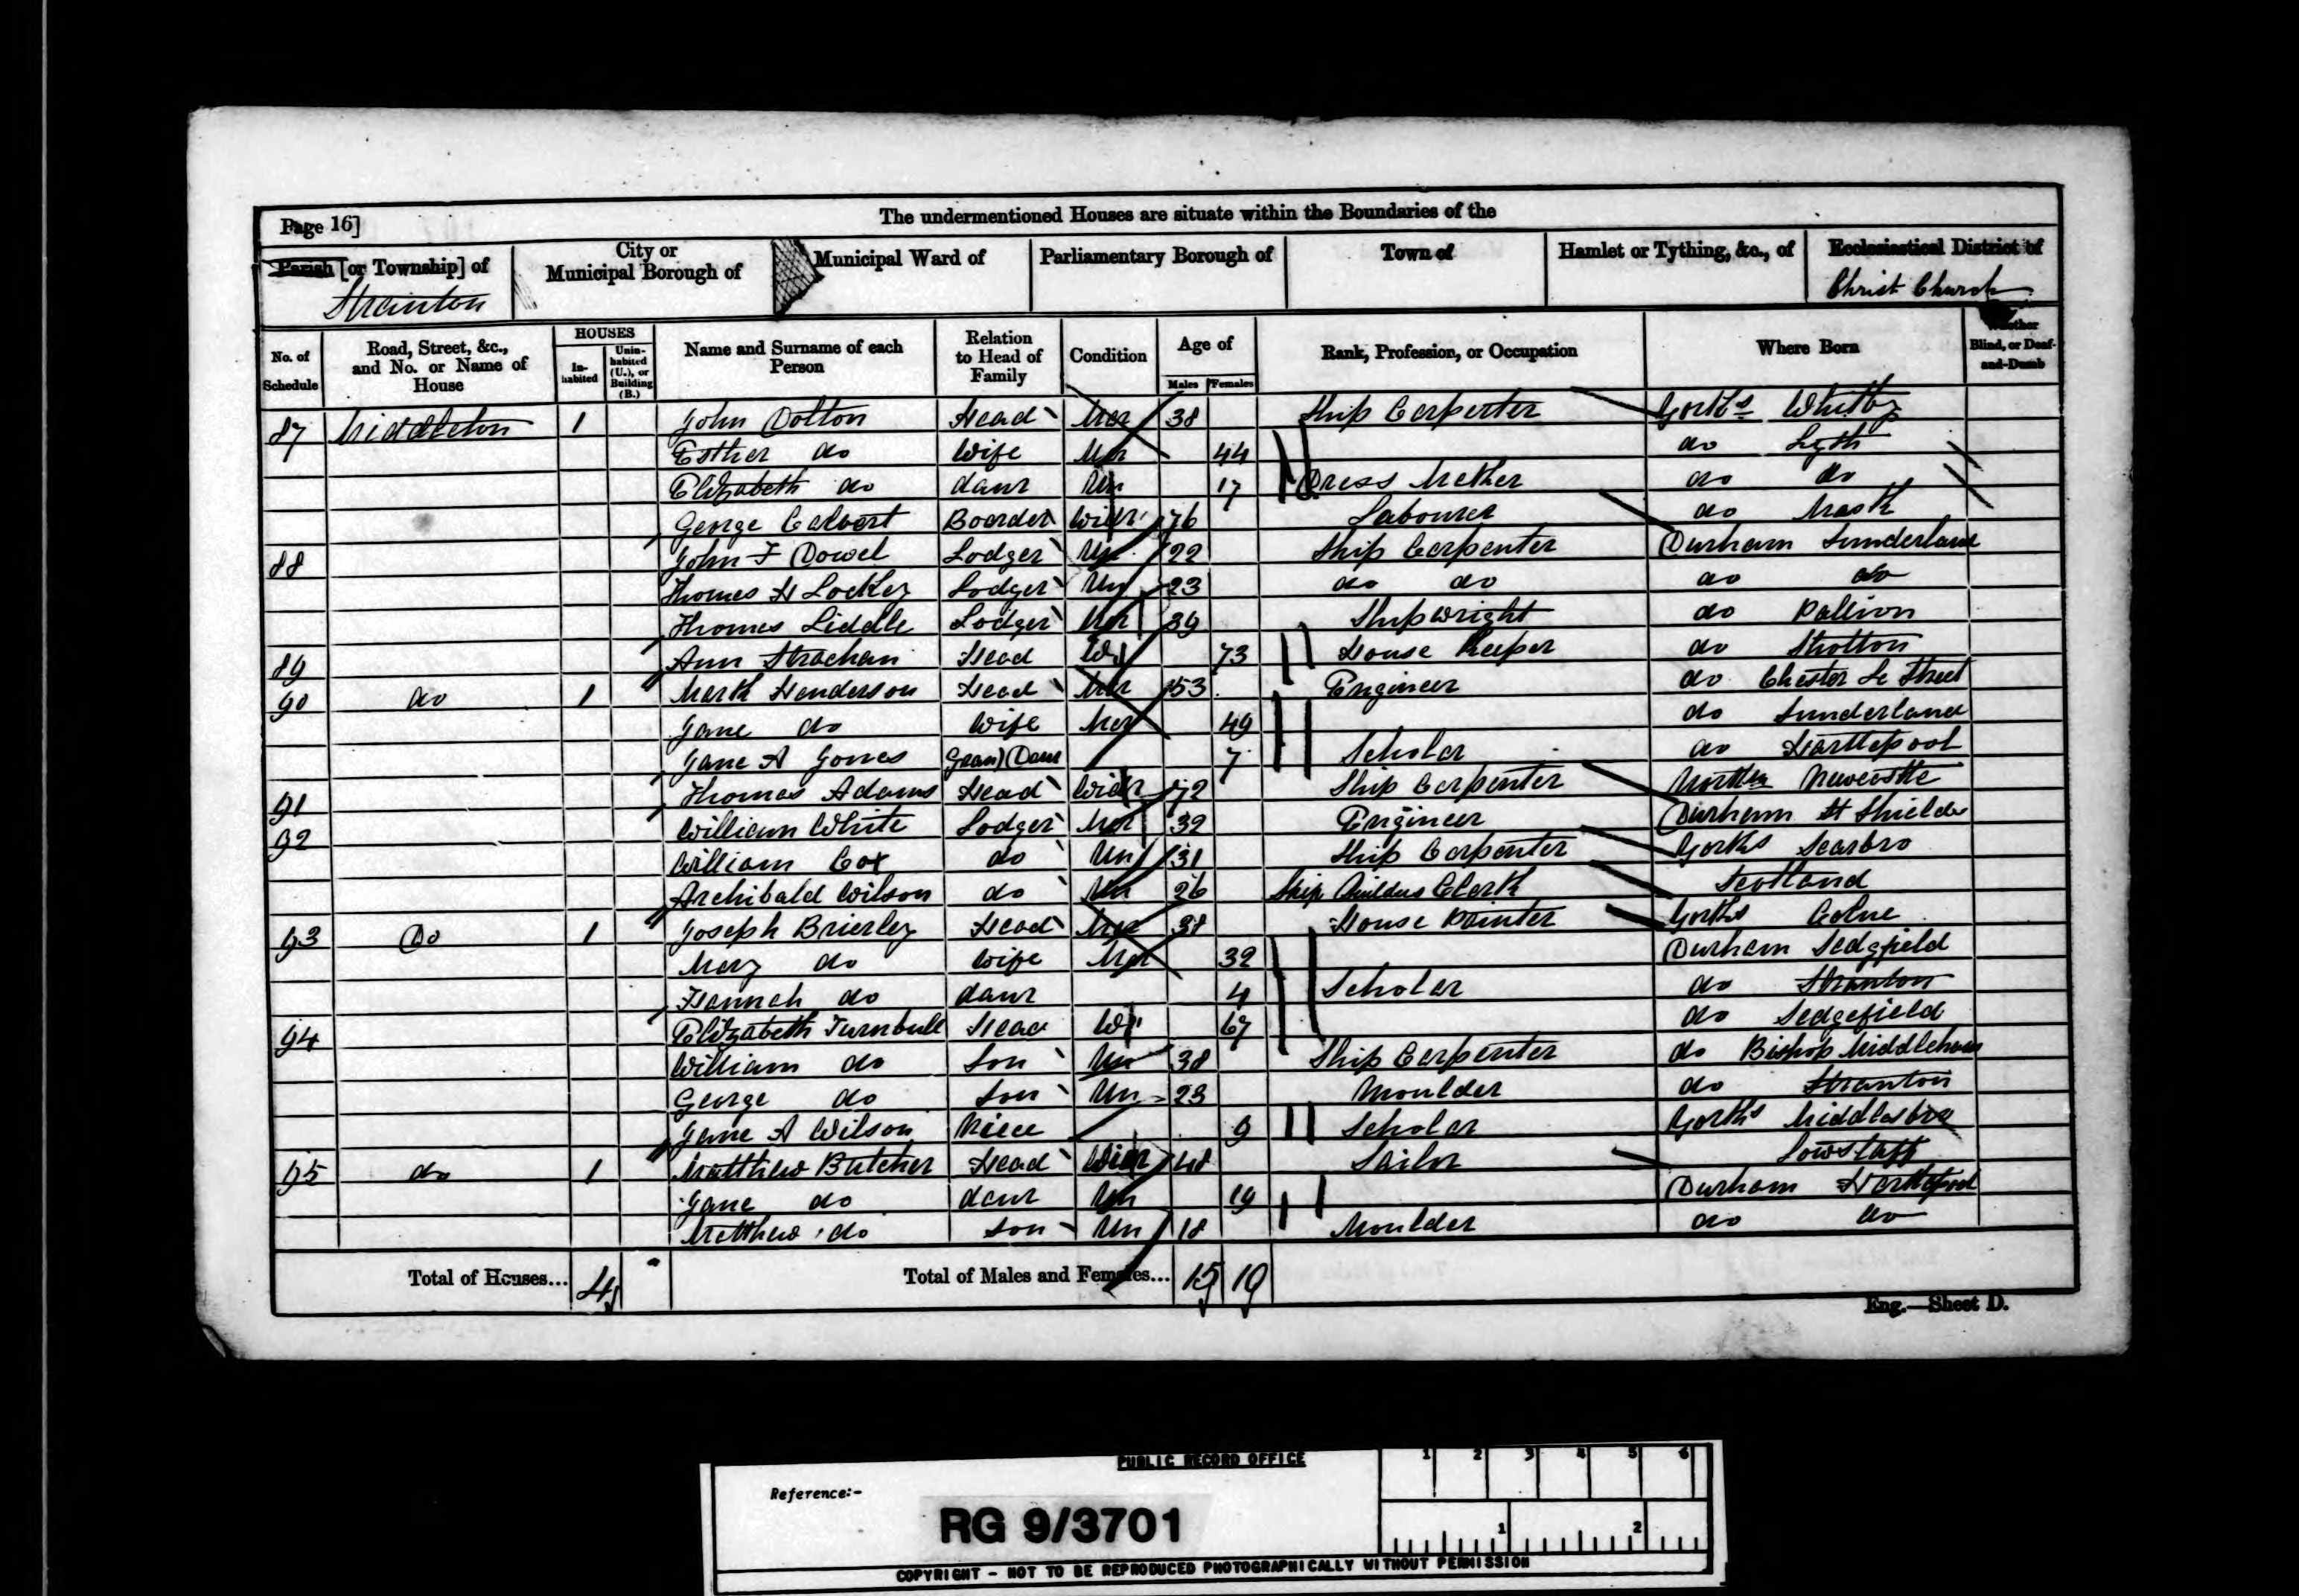 Page 16]
The undermentioned Houses are situate within the Boundaries of the
Parish [or Township] of
City or Municipal Borough of
Municipal Ward of
Parliamentary Borough of
Town of
Hamlet or Tything, &c., of
Ecclesiastical District of
Stranton
Christ Church
No. of Schedule
Road, Street, &c., and No. or Name of House
HOUSES
In-habited
Unin-habited (U.), or Building (B.)
Name and Surname of each Person
Relation to Head of Family
Condition
Age of
Males
Females
Rank, Profession, or Occupation
Where Born
Whether Blind, or Deaf-and-Dumb
87 Middleton 1 John Dotton Head Mar 38 Ship Carpenter Yorks Whitby
Esther do Wife Mar 44 do Lyth
Elizabeth do daur Un 17 Dress Mecker do do
George Calvert Boarder Widr 76 Labourer do Mask
88 John F Dowel Lodger Un 22 Ship Carpenter Durham Sunderland
Thomas H Lockey Lodger Un 23 do do do do
Thomas Liddle Lodger Mar 39 Shipwright do Pallion
89 Ann Strachan Head W 73 House Keeper do Shotton
90 do 1 Mark Henderson Head Mar 53 Engineer do Chester Le Street
Jane do Wife Mar 49 do Sunderland
Jane A Jones Gran) Daur 7 Scholar do Hartlepool
91 Thomas Adams Head Widr 72 Ship Carpenter Newcastle
92 William White Lodger Mar 32 Engineer Durham St Shields
William Cox do Un 31 Ship Carpenter Yorks Scarbro
Archibald Wilson do Un 26 Ship Builders Clerk Scotland
93 Do 1 Joseph Brierley Head Mar 38 House Painter Yorks Colne
Mary do Wife Mar 32 Durham Sedgfield
Hannah do daur 4 Scholar do Stranton
94 Elizabeth Turnbull Head W 67 do Sedgefield
William do Son Un 38 Ship Carpenter do Bishop Middleham
George do Son Un 23 Moulder do Stranton
Jane A Wilson Niece 9 Scholar Yorks Middlesbro
95 do 1 Matthew Butcher Head Widr 48 Sailor Lowstaff
Jane do daur Un 19 Durham Hartlepool
Matthew do Son Un 18 Moulder do do
Total of Houses... 4
Total of Males and Females... 15 10
Eng.—Sheet D.
PUBLIC RECORD OFFICE
1 2 3 4 5 6
Reference:-
RG 9/3701
1 2
COPYRIGHT - NOT TO BE REPRODUCED PHOTOGRAPHICALLY WITHOUT PERMISSION